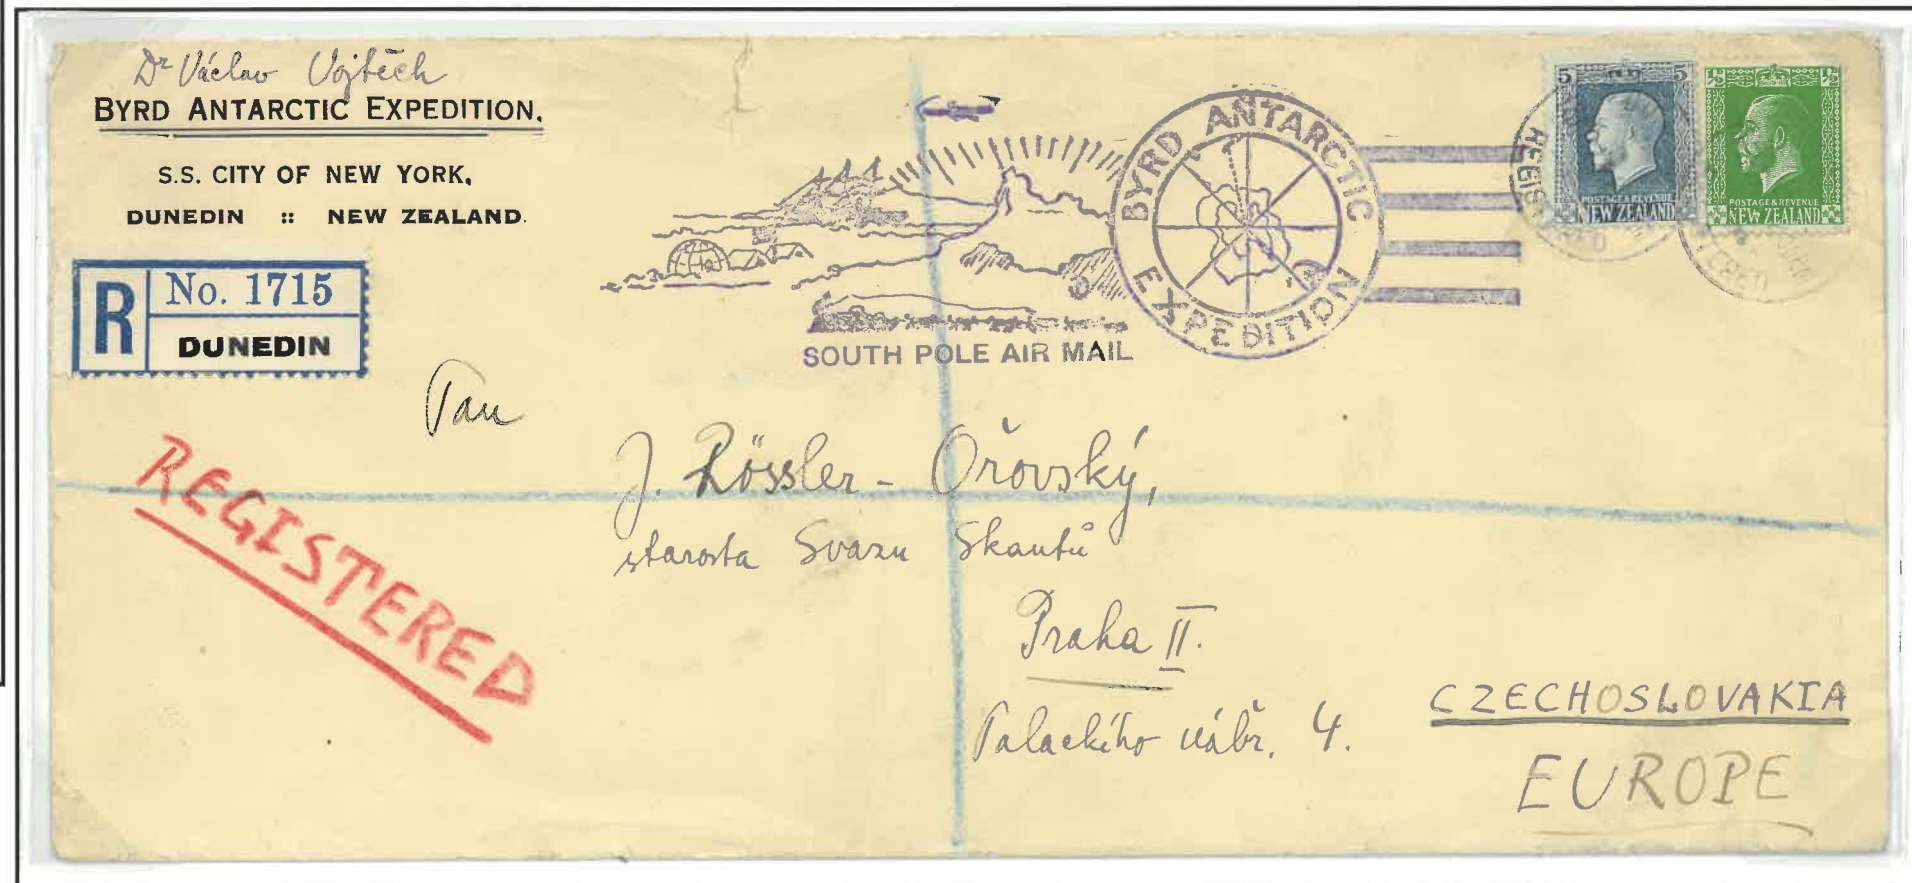 Dr Václav Vojtěch
BYRD ANTARCTIC EXPEDITION.
S.S. CITY OF NEW YORK,
DUNEDIN :: NEW ZEALAND.
R No. 1715
DUNEDIN
SOUTH POLE AIR MAIL
BYRD ANTARCTIC
EXPEDITION
5 5
POSTAGE & REVENUE
NEW ZEALAND
½ ½
POSTAGE & REVENUE
NEW ZEALAND
REGISTERED
Pan
J. Rössler - Ořovský,
starosta Svazu Skautů
Praha II.
Palackého nábř. 4.
CZECHOSLOVAKIA
EUROPE
REGISTERED